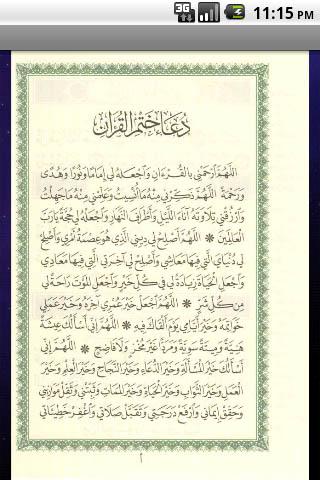 11:15 PM
3G
دُعَاءُ خَتْمِ الْقُرْآنِ
اللَّهُمَّ ارْحَمْنِي بِالْقُرْءَانِ وَاجْعَلْهُ لِي إِمَامًا وَنُورًا وَهُدًى
وَرَحْمَةً اللَّهُمَّ ذَكِّرْنِي مِنْهُ مَا نُسِّيتُ وَعَلِّمْنِي مِنْهُ مَا جَهِلْتُ
وَارْزُقْنِي تِلَاوَتَهُ آنَاءَ اللَّيْلِ وَأَطْرَافَ النَّهَارِ وَاجْعَلْهُ لِي حُجَّةً يَارَبَّ
الْعَالَمِينَ ❋ اللَّهُمَّ أَصْلِحْ لِي دِينِي الَّذِي هُوَ عِصْمَةُ أَمْرِي وَأَصْلِحْ
لِي دُنْيَايَ الَّتِي فِيهَا مَعَاشِي وَأَصْلِحْ لِي آخِرَتِي الَّتِي فِيهَا مَعَادِي
وَاجْعَلِ الْحَيَاةَ زِيَادَةً لِي فِي كُلِّ خَيْرٍ وَاجْعَلِ الْمَوْتَ رَاحَةً لِي
مِن كُلِّ شَرٍّ ❋ اللَّهُمَّ اجْعَلْ خَيْرَ عُمْرِي آخِرَهُ وَخَيْرَ عَمَلِي
خَوَاتِمَهُ وَخَيْرَ أَيَّامِي يَوْمَ أَلْقَاكَ فِيهِ ❋ اللَّهُمَّ إِنِّي أَسْأَلُكَ عِيشَةً
هَنِيَّةً وَمِيتَةً سَوِيَّةً وَمَرَدًّا غَيْرَ مُخْزٍ وَلَا فَاضِحٍ ❋ اللَّهُمَّ إِنِّي
أَسْأَلُكَ خَيْرَ الْمَسْأَلَةِ وَخَيْرَ الدُّعَاءِ وَخَيْرَ النَّجَاحِ وَخَيْرَ الْعِلْمِ وَخَيْرَ
الْعَمَلِ وَخَيْرَ الثَّوَابِ وَخَيْرَ الْحَيَاةِ وَخَيْرَ الْمَمَاتِ وَثَبِّتْنِي وَثَقِّلْ مَوَازِينِي
وَحَقِّقْ إِيمَانِي وَارْفَعْ دَرَجَتِي وَتَقَبَّلْ صَلَاتِي وَاغْفِرْ خَطِيئَاتِي